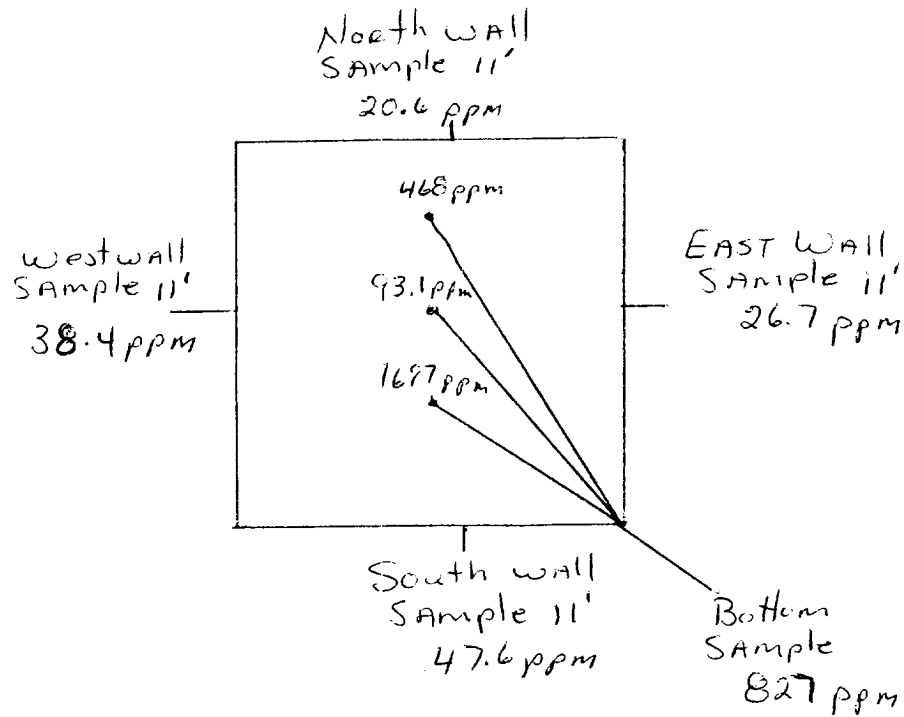 North WAll
SAmple 11'
20.6 ppm
468 ppm
93.1 ppm
ppm
West wall
SAmple 11'
38.4 ppm
EAST WAll
SAmple 11'
26.7 ppm
South WAll
SAmple 11'
47.6 ppm
Bottom
SAmple
827 ppm